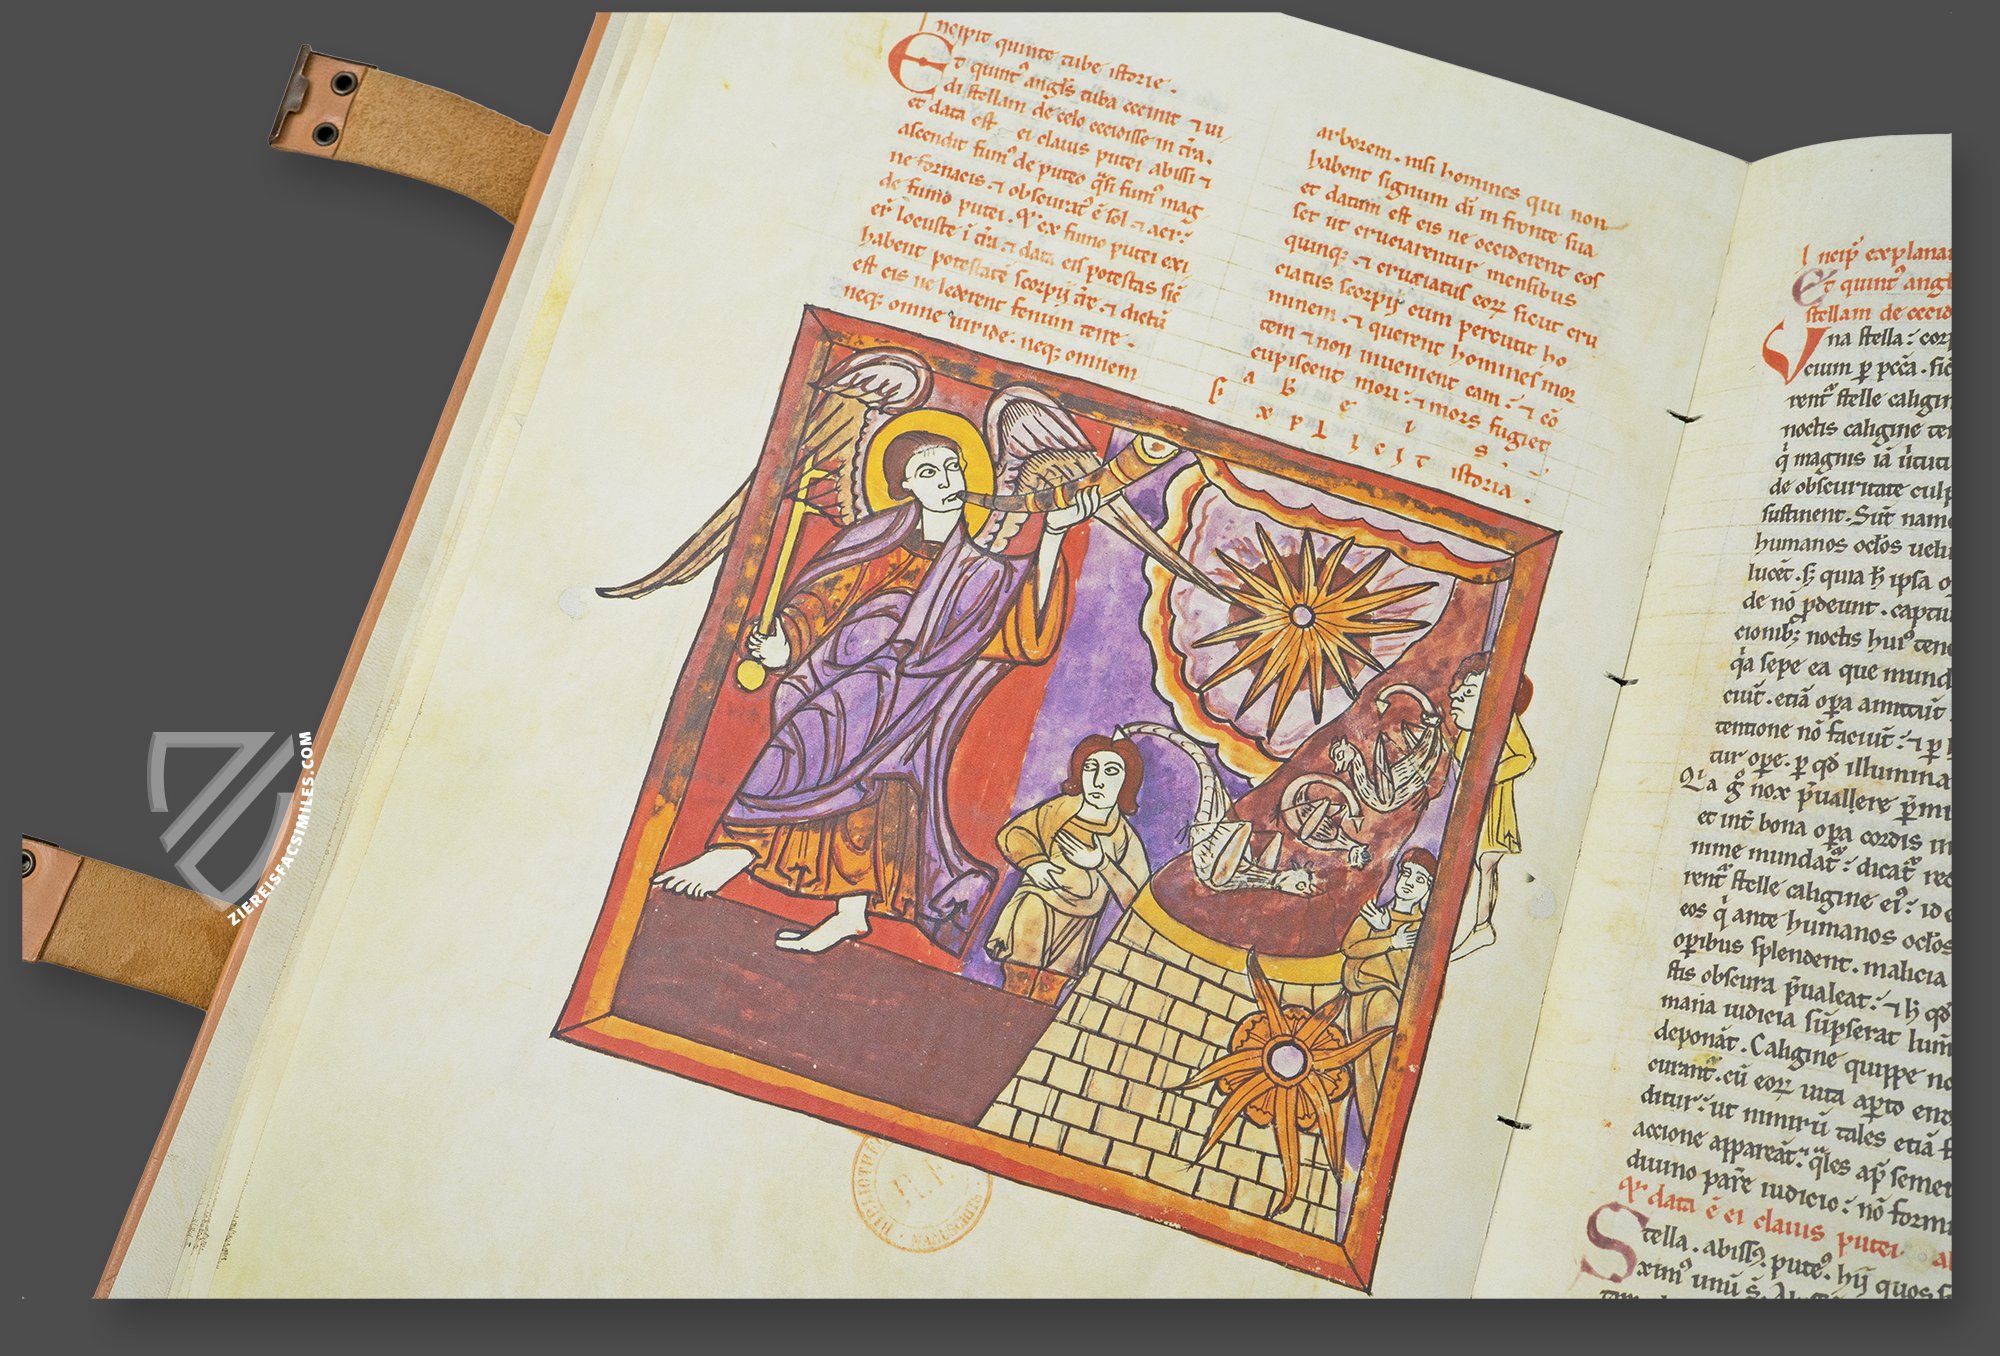 Incipit quinte tube istorie.
Et quint᷒ angls̄ tuba cecinit ⁊ ui
di stellam de celo cecidisse in tr̄a.
et data est ei clauis putei abissi ⁊
ascendit fum᷒ de puteo q̄si fum᷒ mag
ne fornacis. ⁊ obscurat᷒ ē sol ⁊ aer
de fumo putei. ex fumo putei exi
er̄ locuste ī tr̄a ⁊ data eis potestas sic̄
habent potestatē scorpij tr̄e. ⁊ dictū
est eis ne lederent fenum terre.
neq; omne uiride. neq; omnem
arborem. nisi homines qui non
habent signum dī in fronte sua
et datum est eis ne occiderent eos
set ut cruciarentur mensibus
quinq;. ⁊ cruciatus eoꝝ sicut cru
ciatus scorpij cum percutit ho
minem. ⁊ querent homines mor
tem ⁊ non inuenient eam: ⁊ cō
cupiscent mori: ⁊ mors fugiet
a B e i s
si
xplicit istoria.
Incip̄ explana
Et quint᷒ angl
stellam de cecid
Una stella: cor
cium
rent᷒ stelle caligin
noctis caligine te
q̄ magnis iā
de obscuritate culp
sustinent. Sūt nam
humanos oc̄los uelu
lucet. quia ipsa o
de nō pdeunt. captu
cionib; noctis hui᷒ tene
q̄a sepe ea que mund
ciūt. etiā opa amittūt
tentione nō faciūt: ⁊ p
tur ope. p qd̄ illumina
Q̄a nox p̄uallere
et int̄ bona opa cordis
nime mundat᷒: dicat᷒
rent᷒ stelle caligine ei᷒: id e
eos q̄ ante humanos oc̄los
opibus splendent. malicia
stis obscura p̄ualeat: ⁊ qd̄
maria iudicia sūpserat lum
deponāt. Caligine quippe no
curant᷒. cū eoꝝ uita apto
ditur: ut nimirū tales etiā
accione appareāt. q̄les ap̄ semer
diuino parē iudicio: nō form
data ē ei clauis putei a
Stella. abiss᷒. pute᷒. hij quos
xim᷒ unū s̄.
BIBLIOTHE
R.F.
MANUSCRITS
ZIEREISFACSIMILES.COM